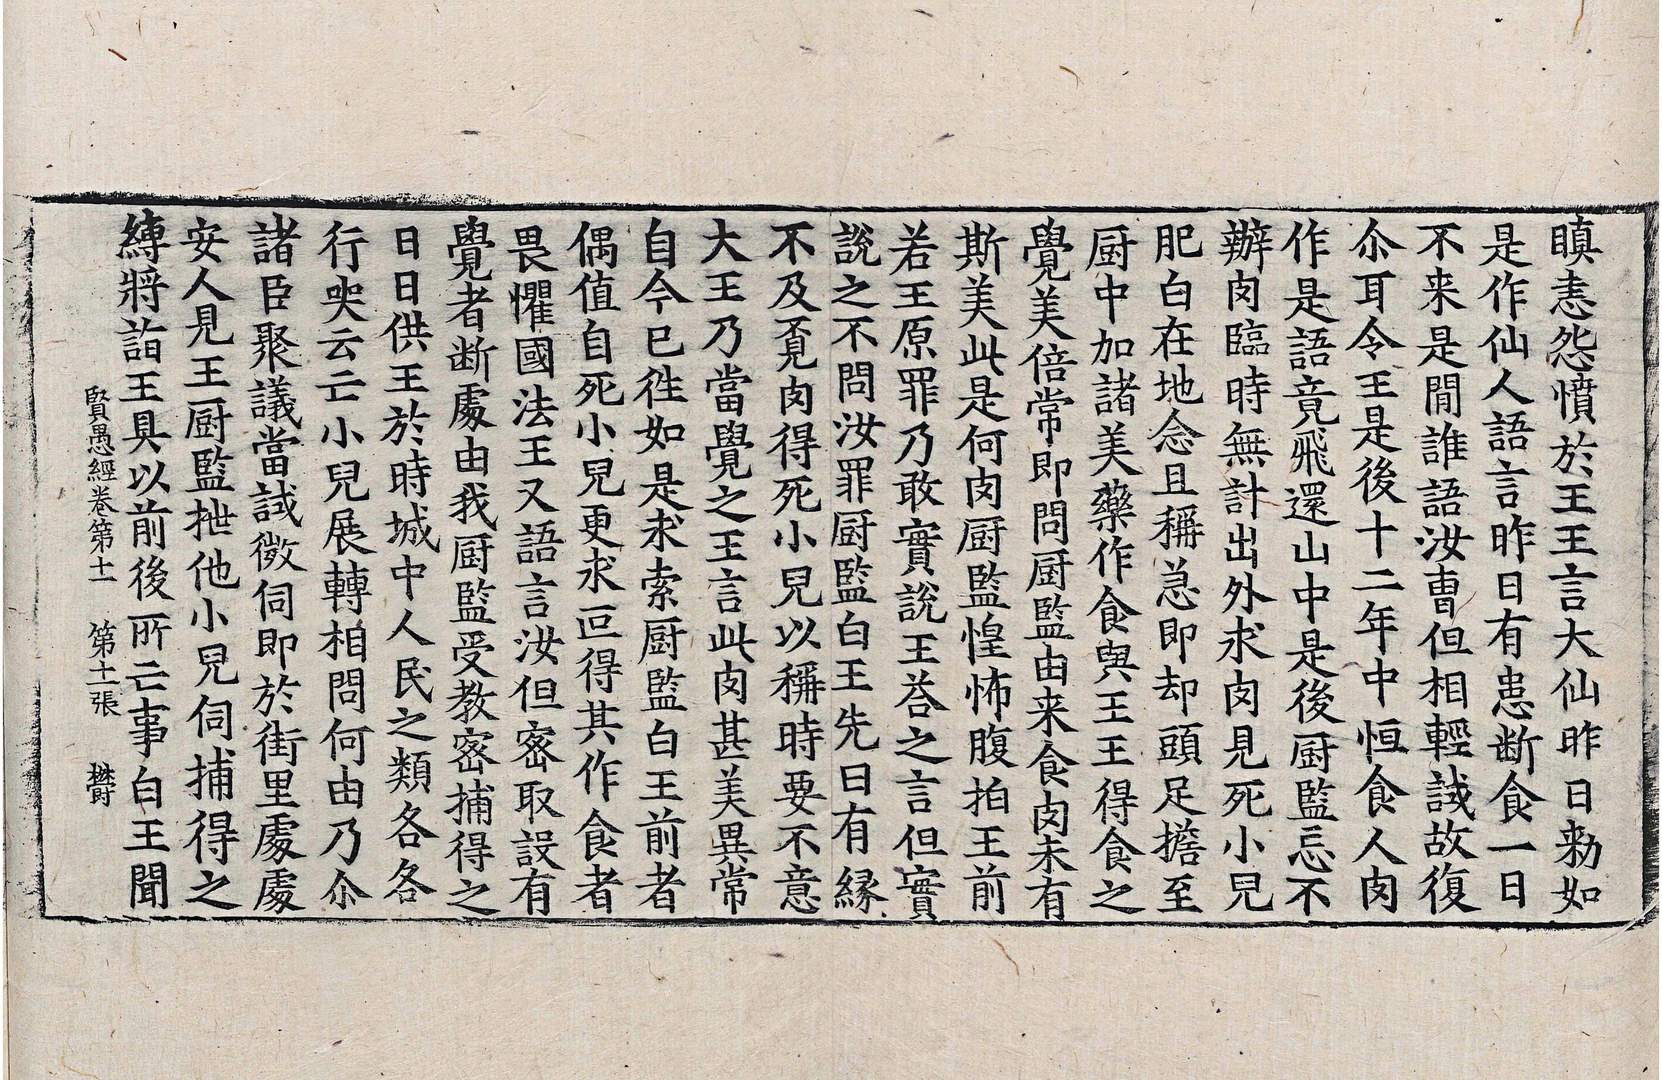 瞋恚怨憤於王王言大仙昨日勑如
是作仙人語言昨日有恚断食一日
不来是閒誰語汝曹但相輕試故復
尒耳令王是後十二年中恒食人肉
作是語竟飛還山中是後厨監忘不
辦肉臨時無計出外求肉見死小兒
肥白在地念且稱急即却頭足擔至
厨中加諸美藥作食與王王得食之
覺美倍常即問厨監由来食肉未有
斯美此是何肉厨監惶怖腹拍王前
若王原罪乃敢實說王荅之言但實
說之不問汝罪厨監白王先日有緣
不及覓肉得死小兒以稱時要不意
大王乃當覺之王言此肉甚美異常
自今已徃如是求索厨監白王前者
偶值自死小兒更求叵得其作食者
畏懼國法王又語言汝但密取設有
覺者断處由我厨監受教密捕得之
日日供王於時城中人民之類各各
行哭云亡小兒展轉相問何由乃尒
諸臣聚議當試微伺即於街里處處
安人見王厨監抴他小兒伺捕得之
縛將詣王具以前後所亡事白王聞
賢愚經卷第十一　第十一張　欎